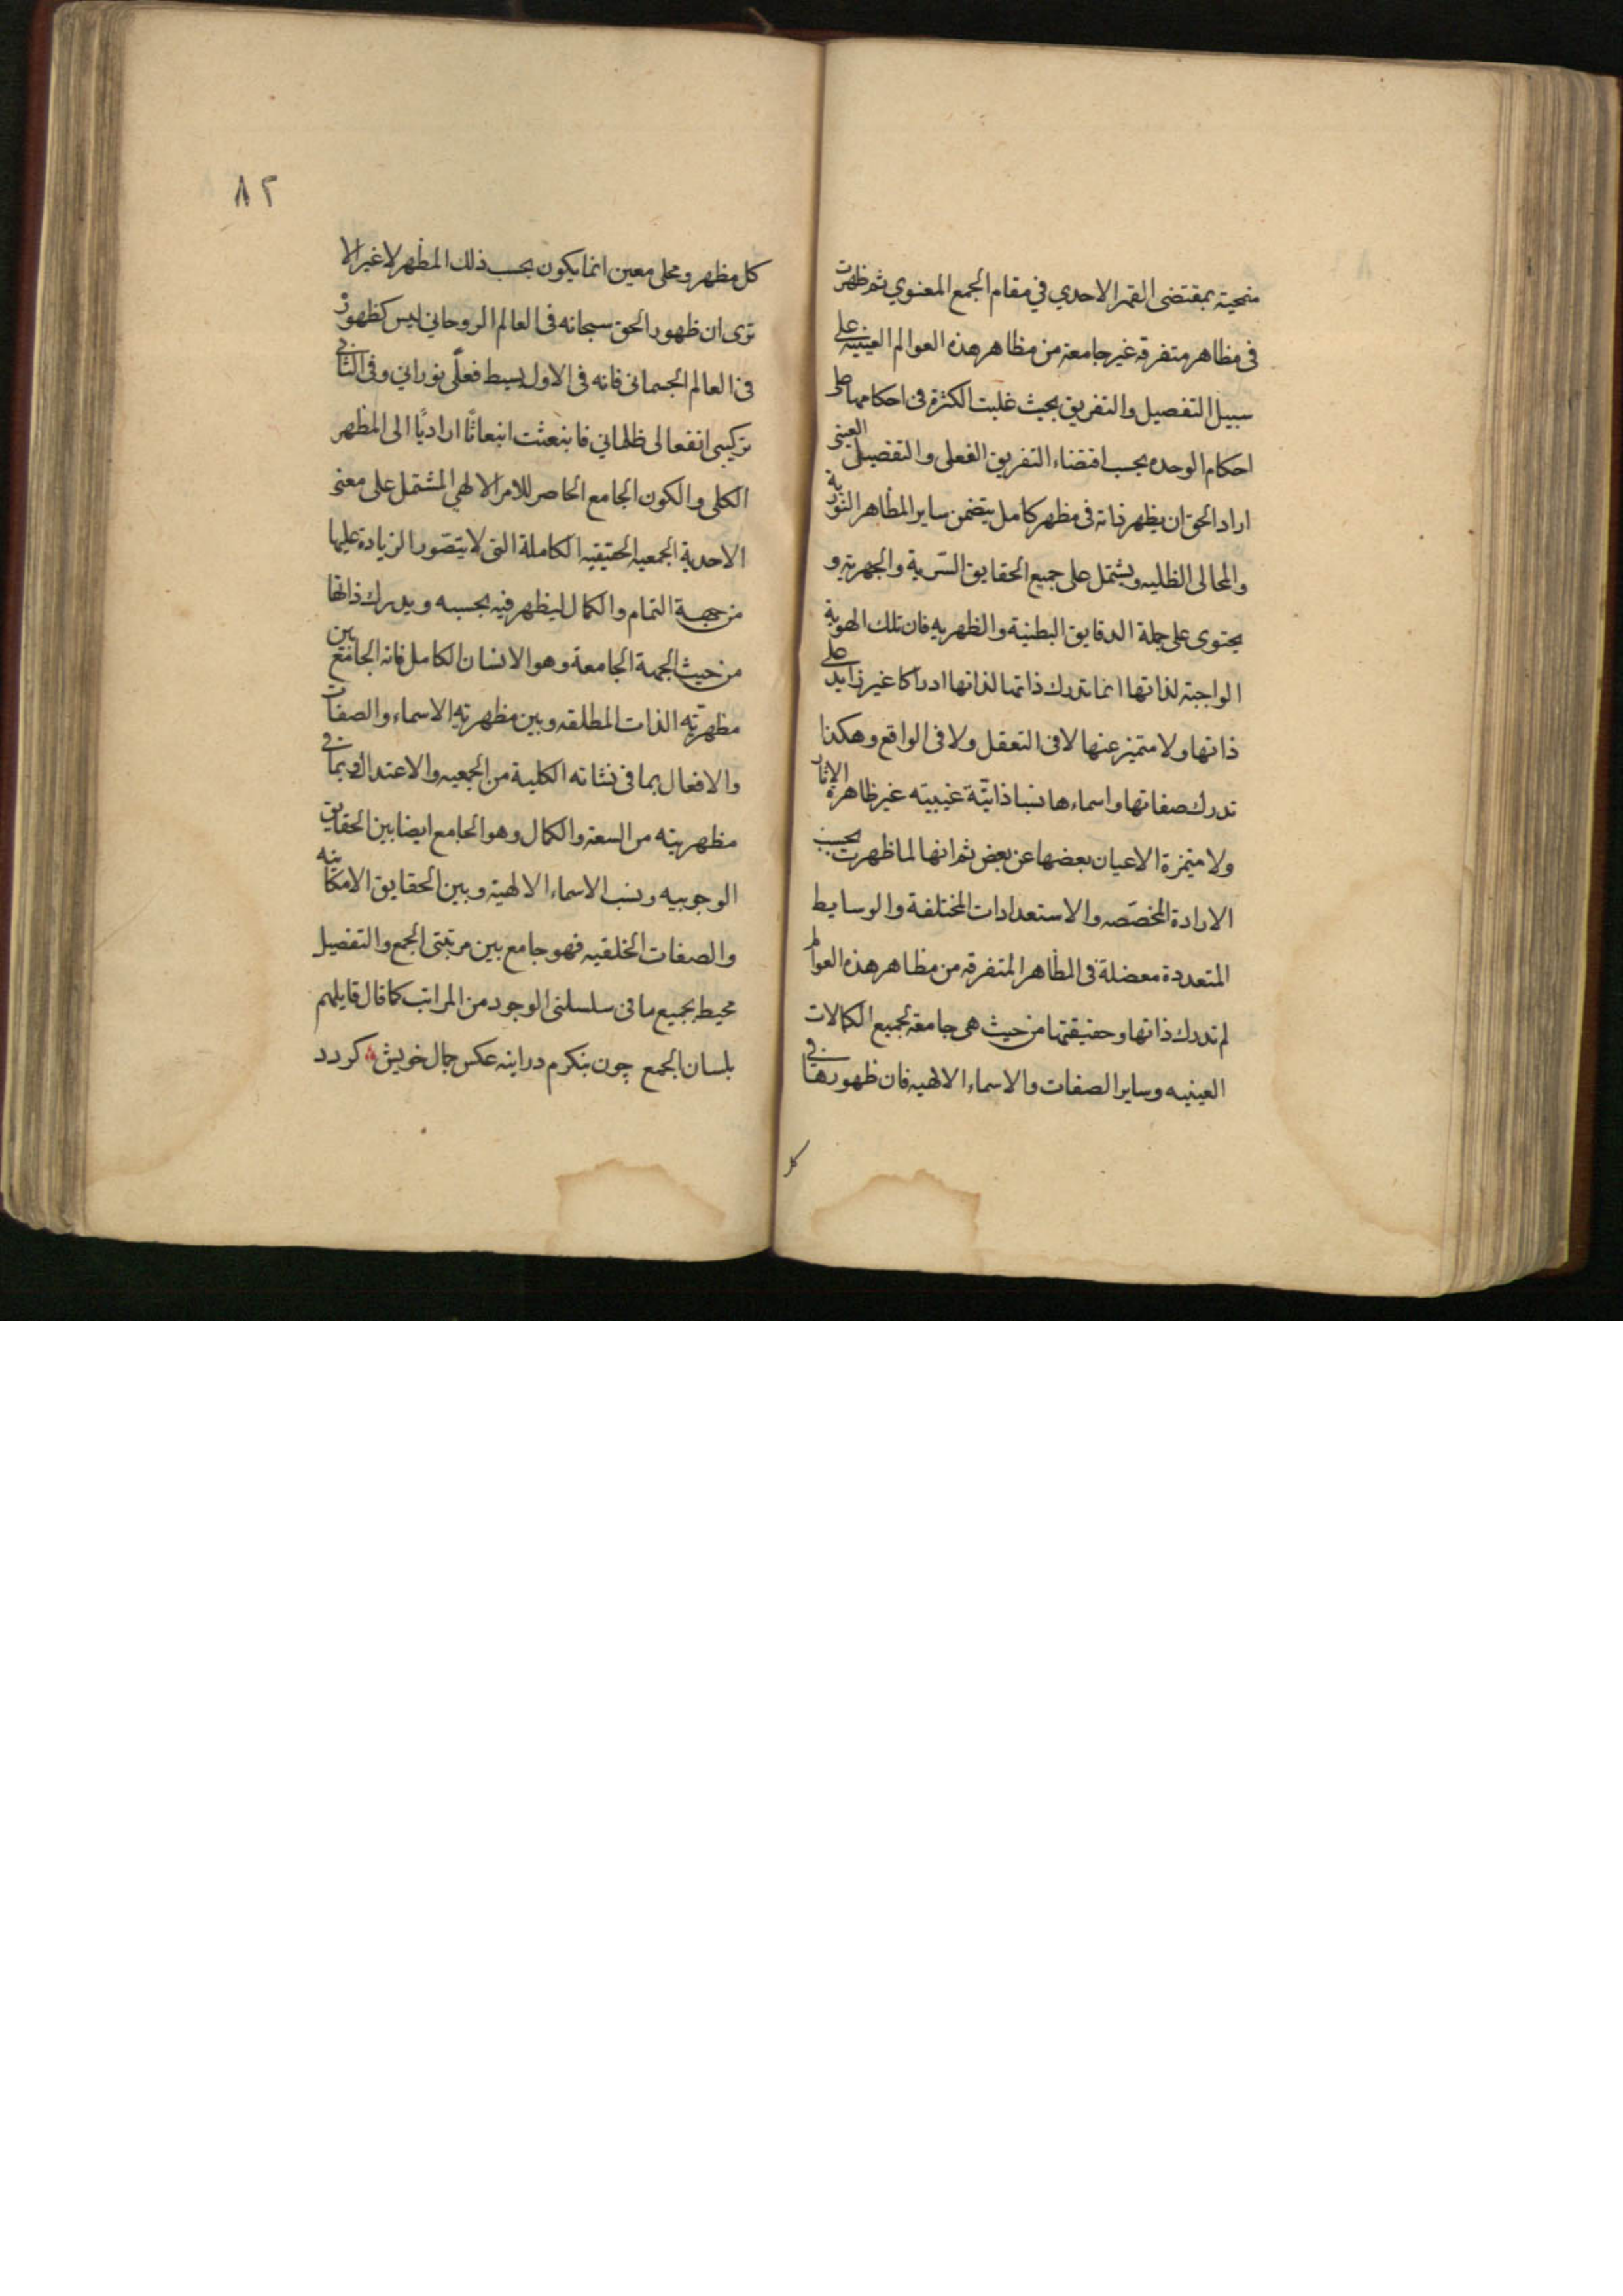 منمحية بمقتضى القهر الاحدي في مقام الجمع المعنوي ثم ظهرت
فى مظاهر متفرقه غير جامعة من مظاهر هذه العوالم العينيه على
سبيل التفصيل والتفريق بحيث غلبت الكثرة فى احكامها على
احكام الوحده بحسب اقتضاء التفريق الفعلى والتفصيل العينى
اراد الحق ان يظهر ذاته فى مظهر كامل يتضمن ساير المظاهر النورية
والمجالى الظليه ويشتمل على جميع الحقايق السّرية والجهرية و
يحتوى على جملة الدقايق البطنية والظهريه فان تلك الهوية
الواجبة لذاتها انما تدرك ذاتها لذاتها ادراكا غير زايد على
ذاتها ولا متميز عنها لا فى التعقل ولا فى الواقع وهكذا
تدرك صفاتها واسماءها نسبا ذاتيّة غيبيته غير ظاهرة الاثار
ولا متميزة الاعيان بعضها عن بعض ثم انها لما ظهرت بحسب
الارادة المخصّصه والاستعدادات المختلفة والوسايط
المتعددة معضلة فى المظاهر المتفرقه من مظاهر هذه العوالم
لم تدرك ذاتها وحقيقتها من حيث هى جامعة لجميع الكمالات
العينيه وساير الصفات والاسماء الالهيه فان ظهورها فى
كل
٨٢
كل مظهر ومجلى معين انما يكون بحسب ذلك المظهر لا غير الا
ترى ان ظهور الحق سبحانه فى العالم الروحاني ليس كظهوره
فى العالم الجسمانى فانه فى الاول بسيط فعلّى نورانى وفى الثانى
تركيبى انفعالى ظلمانى فانبعثت انبعاثًا اراديًا الى المظهر
الكلى والكون الجامع الحاصر للامر الالهي المشتمل على معنى
الاحدية الجمعيه الحقيقيه الكاملة التى لا يتصّور الزيادة عليها
من جهة التمام والكمال ليظهر فيه بحسبه ويدرك ذاتها
من حيث الجهة الجامعة وهو الانسان الكامل فانه الجامع بين
مظهريّه الذات المطلقه وبين مظهريّه الاسماء والصفات
والافعال بما فى نشاته الكلية من الجمعيه والاعتدال وبما فى
مظهريته من السعة والكمال وهو الجامع ايضا بين الحقايق
الوجوبيه ونسب الاسماء الالهية وبين الحقايق الامكانيه
والصفات الخلقيه فهو جامع بين مرتبتى الجمع والتفصيل
محيط بجميع ما فى سلسلتى الوجود من المراتب كما قال قايلهم
بلسان الجمع چون بنكرم در اينه عكس جمال خويش كردد